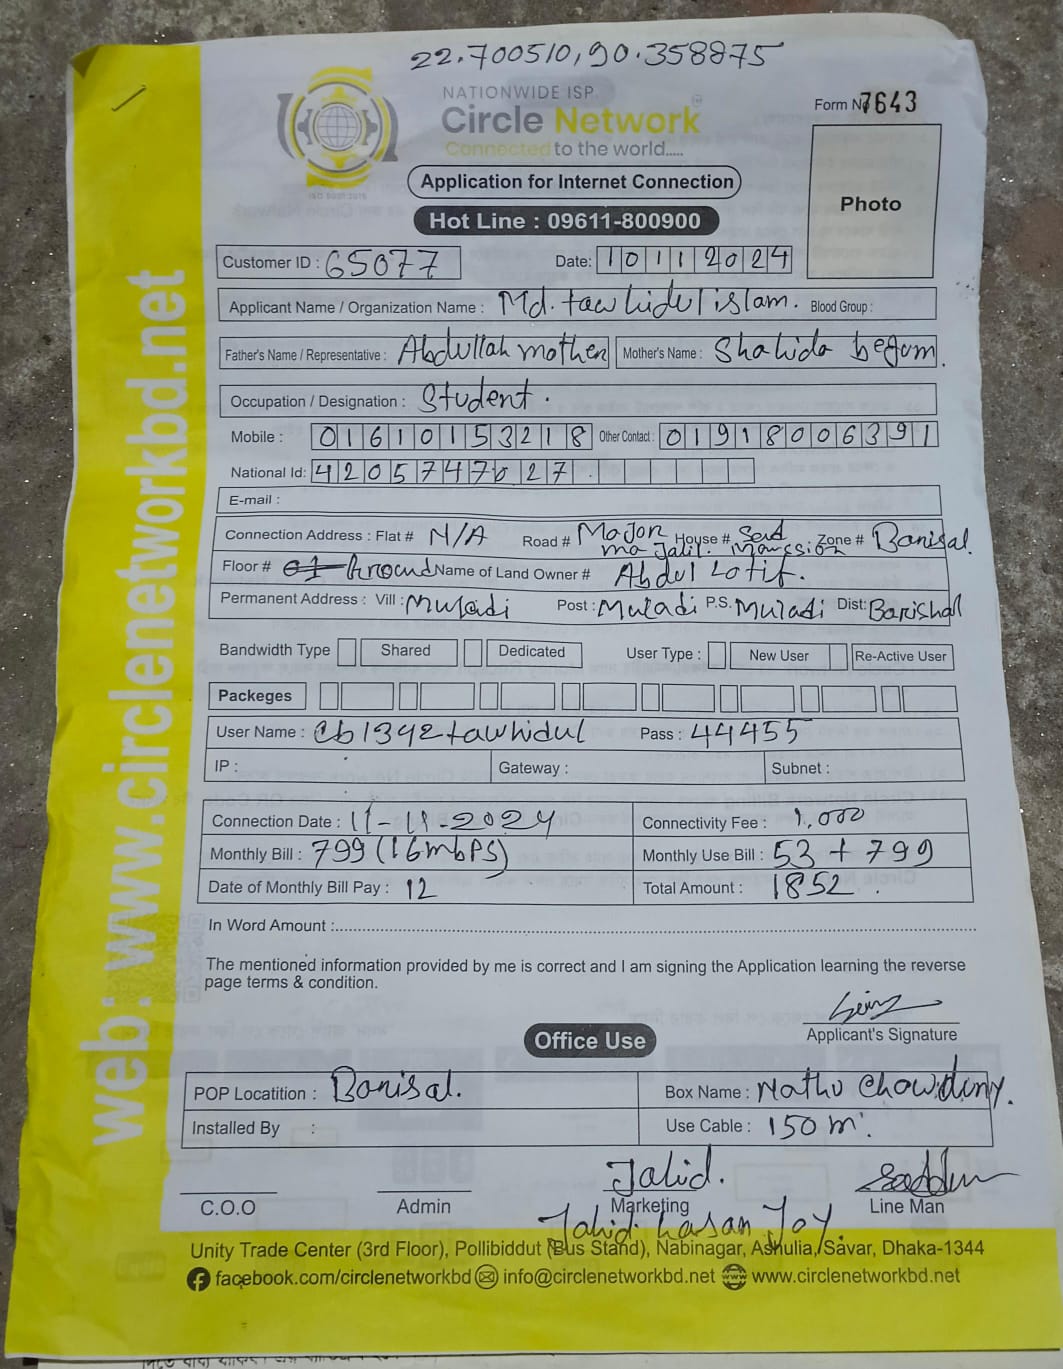 22.700510, 90.358875
NATIONWIDE ISP.
Circle Network
Connected to the world.....
ISO 9001:2015
Form No 7643
Application for Internet Connection
Photo
Hot Line : 09611-800900
Customer ID : 65077 Date: 10112024
Applicant Name / Organization Name : Md. tawhidul islam. Blood Group :
Father's Name / Representative : Abdullah mother Mother's Name : Shahida begum.
Occupation / Designation : Student.
Mobile : 01610153218 Other Contact : 01918006391
National Id: 4205747627
E-mail :
Connection Address : Flat # N/A Road # Major ma Jalil. House # Zone # Barisal.
Floor # Ground Name of Land Owner # Abdul Lotif.
Permanent Address : Vill : Muladi Post : Muladi P.S. Muladi Dist: Barishal
Bandwidth Type Shared Dedicated User Type : New User Re-Active User
Packeges
User Name : cb1392tawhidul Pass : 44455
IP : Gateway : Subnet :
Connection Date : 11-11-2024 Connectivity Fee : 1,000
Monthly Bill : 799 (16mbPS) Monthly Use Bill : 53 + 799
Date of Monthly Bill Pay : 12 Total Amount : 1852.
In Word Amount :
The mentioned information provided by me is correct and I am signing the Application learning the reverse
page terms & condition.
Applicant's Signature
Office Use
POP Locatition : Barisal. Box Name : Nathu Chowdury.
Installed By : Use Cable : 150 m.
Jahid.
C.O.O Admin Marketing Line Man
Jahid hasan Joy.
Unity Trade Center (3rd Floor), Pollibiddut (Bus Stand), Nabinagar, Ashulia, Savar, Dhaka-1344
facebook.com/circlenetworkbd info@circlenetworkbd.net www.circlenetworkbd.net
web: www.circlenetworkbd.net